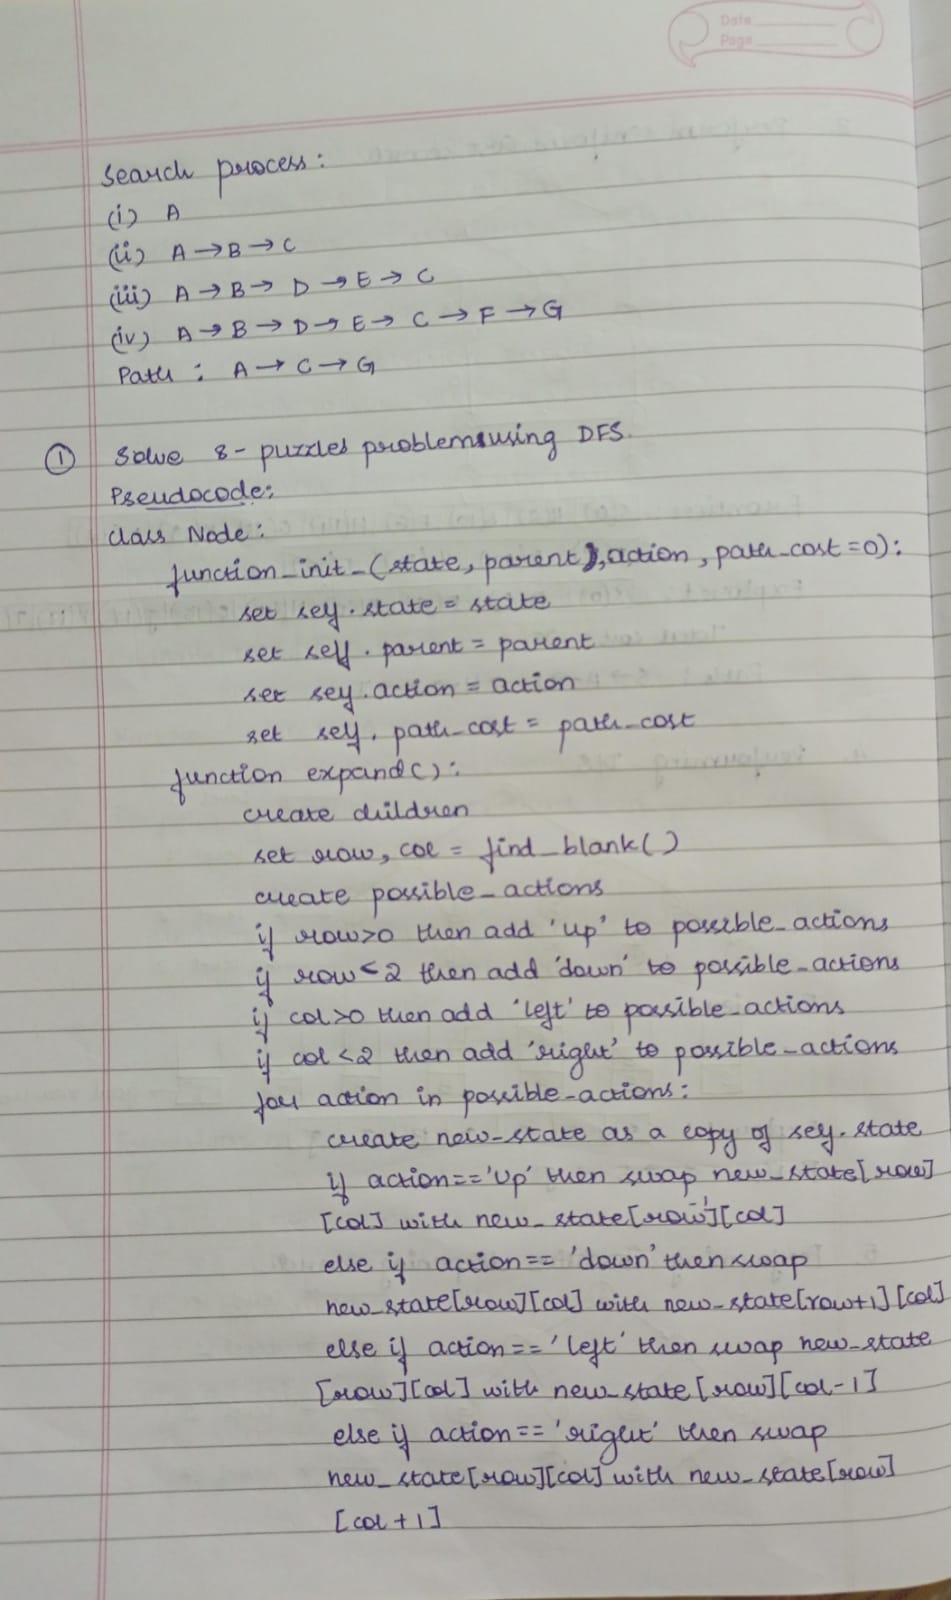 Date
Page
Search process:
(i) A
(ii) A → B → C
(iii) A → B → D → E → C
(iv) A → B → D → E → C → F → G
Path : A → C → G
① Solve 8-puzzles problems using DFS.
Pseudocode:
class Node:
function_init_(state, parent, action, path_cost=0):
set self.state = state
set self.parent = parent
set self.action = action
set self.path_cost = path_cost
function expand():
create children
set row, col = find_blank()
create possible_actions
if row>0 then add 'up' to possible_actions
if row<2 then add 'down' to possible_actions
if col>0 then add 'left' to possible_actions
if col<2 then add 'right' to possible_actions
for action in possible_actions:
create new_state as a copy of self.state
if action=='Up' then swap new_state[row]
[col] with new_state[row-1][col]
else if action== 'down' then swap
new_state[row][col] with new_state[row+1][col]
else if action== 'left' then swap new_state
[row][col] with new_state[row][col-1]
else if action== 'right' then swap
new_state[row][col] with new_state[row]
[col+1]